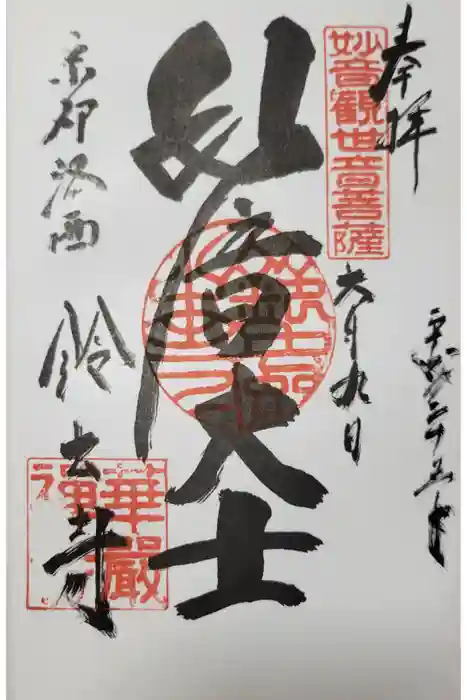 奉拝
平成二十五年
六月九日
妙音觀世音菩薩
妙音大士
京都洛西
鈴虫寺
華嚴
禪寺